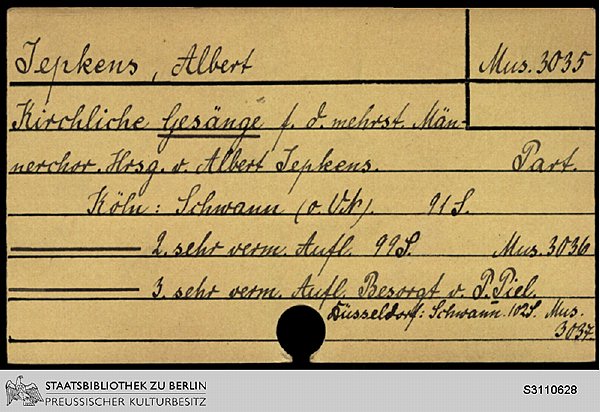 Jepkens, Albert Mus. 3035
Kirchliche Gesänge f. d. mehrst. Män-
nerchor. Hrsg. v. Albert Jepkens. Part.
Köln: Schwann (o. VN). 91 S.
2. sehr verm. Aufl. 99 S. Mus. 3036
3. sehr verm. Aufl. Besorgt v. P. Piel.
Düsseldorf: Schwann. 102 S. Mus.
3037.
STAATSBIBLIOTHEK ZU BERLIN
PREUSSISCHER KULTURBESITZ
S3110628